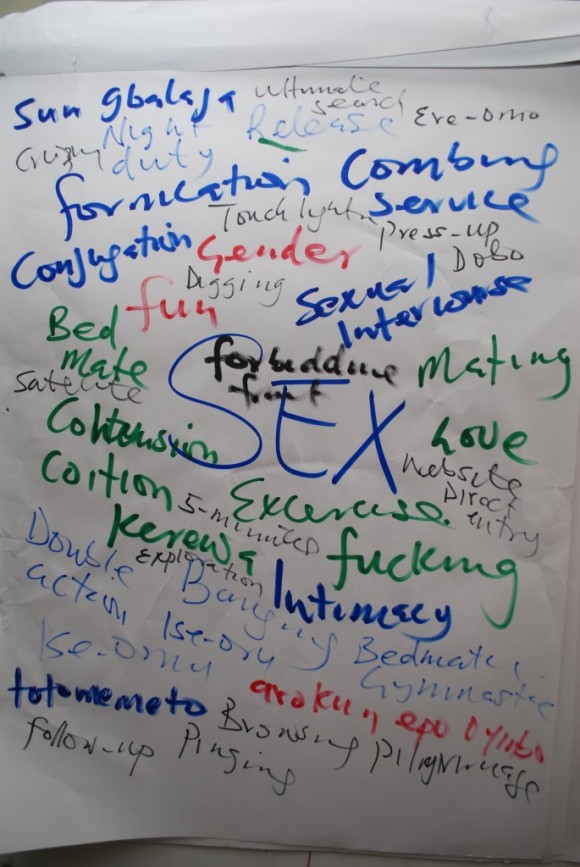 Sun gbalaja
Ultimate
search
Ere-omo
Night
duty
Release
fornication
Combing
Service
Touchlight
Press-up
Conjugation
Gender
Dobo
Digging
Sexual
Intercourse
fun
Bed
mate
forbiddine
fruit
Mating
Satelite
SEX
Love
Coition
Website
Direct
entry
5-minutes
Excercise
kerewa
fucking
exploration
Double
action
Banging
Intimacy
Bedmatics
Gymnastic
Ise-omu
Ise-oru
totomemeto
arokun epo oyinbo
Browsing
Pilgrimage
follow-up
Pinging